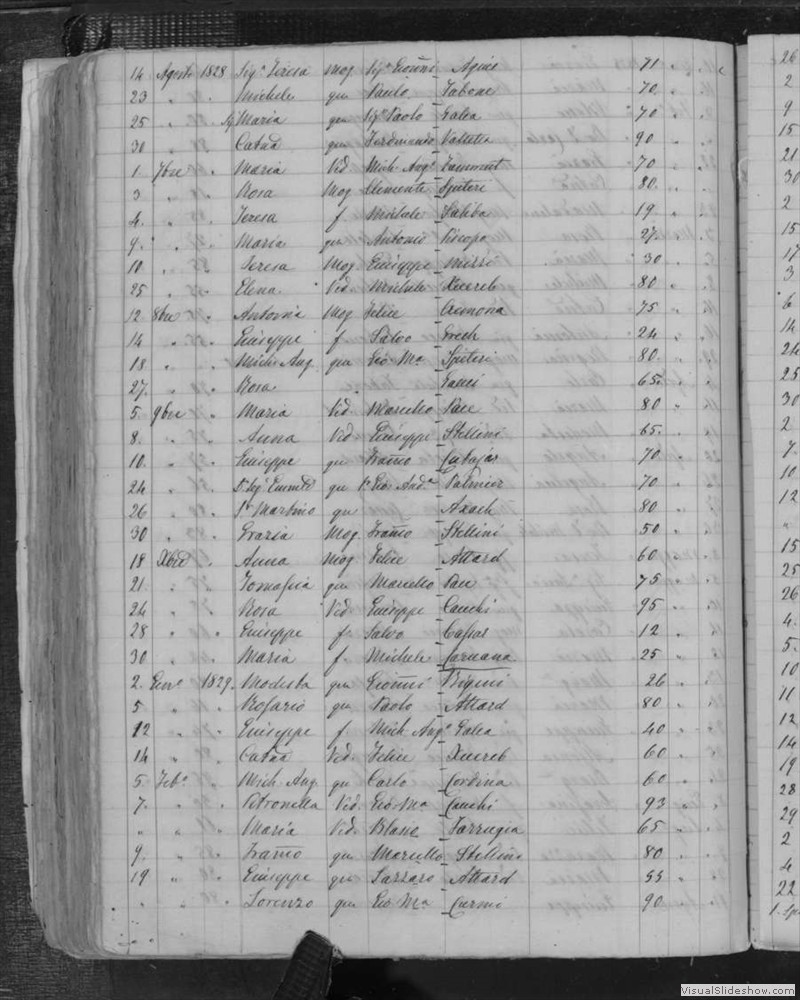 14 Agosto 1828 Sig.a Teresa Mog Sig. Gio Agius 71
23 " " Michele qu Paolo Fabone 70
25 " " Maria qu Sig. Paolo Galea 70
30 " " Catna qu Ferdinando Valletta 90
1 7bre " Maria Vid Mich. Ang.o Zammut 70
3 " " Rosa Mog Clemente Spiteri 80
4 " " Teresa f Michele Saliba 19
9 " " Maria qu Antonio Piscopo 27
10 " " Teresa Mog Giuseppe Mizzi 30
25 " " Elena Vid Michele Xuereb 80
12 8bre " Antonia Mog Felice Cremona 75
14 " " Giuseppe f Salvo Grech 24
18 " " Mich. Ang. qu Gio Ma Spiteri 80
27 " " Rosa Gauci 65
5 9bre " Maria Vid Marcello Pace 80
8 " " Anna Vid Giuseppe Stellini 65
10 " " Giuseppe qu Franco Cutajar 70
24 " " qu Gio And.a Palmier 70
26 " " Martino qu Axach 80
30 " " Grazia Mog Franco Stellini 50
18 Xbre " Anna Mog Felice Attard 60
21 " " Tomasia qu Marcello Pace 75
24 " " Rosa Vid Giuseppe Cauchi 95
28 " " Giuseppe f Salvo Cassar 12
30 " " Maria f Michele Caruana 25
2 Genn.o 1829 Modesta qu Gio Bigeni 26
5 " " Rosario qu Paolo Attard 80
12 " " Giuseppe f Mich Ang.o Galea 40
14 " " Catna Vid Felice Xuereb 60
5 Feb.o " Mich. Ang qu Carlo Cordina 60
7 " " Petronella Vid Gio Ma Cauchi 93
" " " Maria Vid Blase Farrugia 65
9 " " Franco qu Marcello Stellini 80
19 " " Giuseppe qu Lazzaro Attard 55
" " " Lorenzo qu Gio Ma Curmi 90
26
2
9
15
21
30
2
15
17
3
6
14
24
25
30
2
7
10
12
"
15
25
26
4
5
10
11
12
14
19
28
29
2
4
22
VisualSlideshow.com